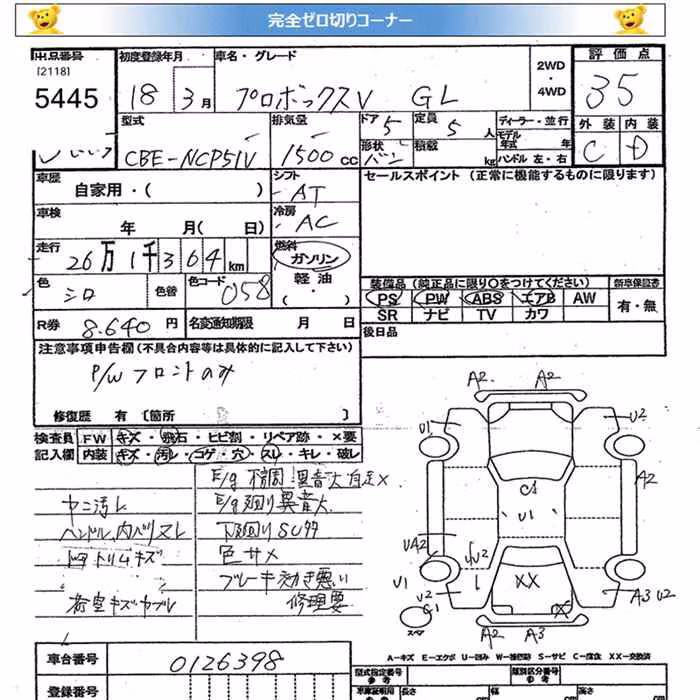 完全ゼロ切りコーナー
出品番号
[2118]
5445
初度登録年月
18年 3月
車名・グレード
プロボックスV GL
2WD
・
4WD
評価点
35
型式
CBE-NCP51V
排気量
1500cc
ドア
5
定員
5人
ディーラー・並行
モデル年式 年
形状
バン
積載
kg
ハンドル 左・右
外装 内装
C D
車歴
自家用・( )
シフト
AT
セールスポイント (正常に機能するものに限ります)
車検
年 月( 日)
冷房
AC
走行
26万1千364km
燃料
ガソリン
軽油
( ・ )
色
シロ
色替
色コード
058
装備品(純正品に限り○をつけてください)
新車保証書
PS PW ABS エアB AW
SR ナビ TV カワ
有・無
R券 8.640円
名変通知期限 月 日
後日品
注意事項申告欄(不具合内容等は具体的に記入して下さい)
P/W フロントのみ
修復歴 有[箇所 ]
検査員
記入欄
FW キズ・飛石・ヒビ割・リペア跡・×要
内装 キズ・汚レ・コゲ・穴・スレ・キレ・破レ
E/g 不調 異音大 自走×
ヤニ汚レ
E/g廻り異音大
ハンドル、内ハリスレ
下廻りSUサ
内トリムキズ
色サメ
荷室キズ・カブレ
ブレーキ効き悪い
修理要
A2 A2
U1 U2
A2
C1
U1
UA2
U2
U1
U2
G1
XX
X
A3 U2
スペア
A2 A3
A-キズ E-エクボ U-凹み W-補修跡 S-サビ C-腐食 XX-交換済
車台番号
0126398
登録番号
型式指定番号
参考
類別区分番号
参考
車庫証明用
参考
長さ
cm
幅
cm
高さ
cm